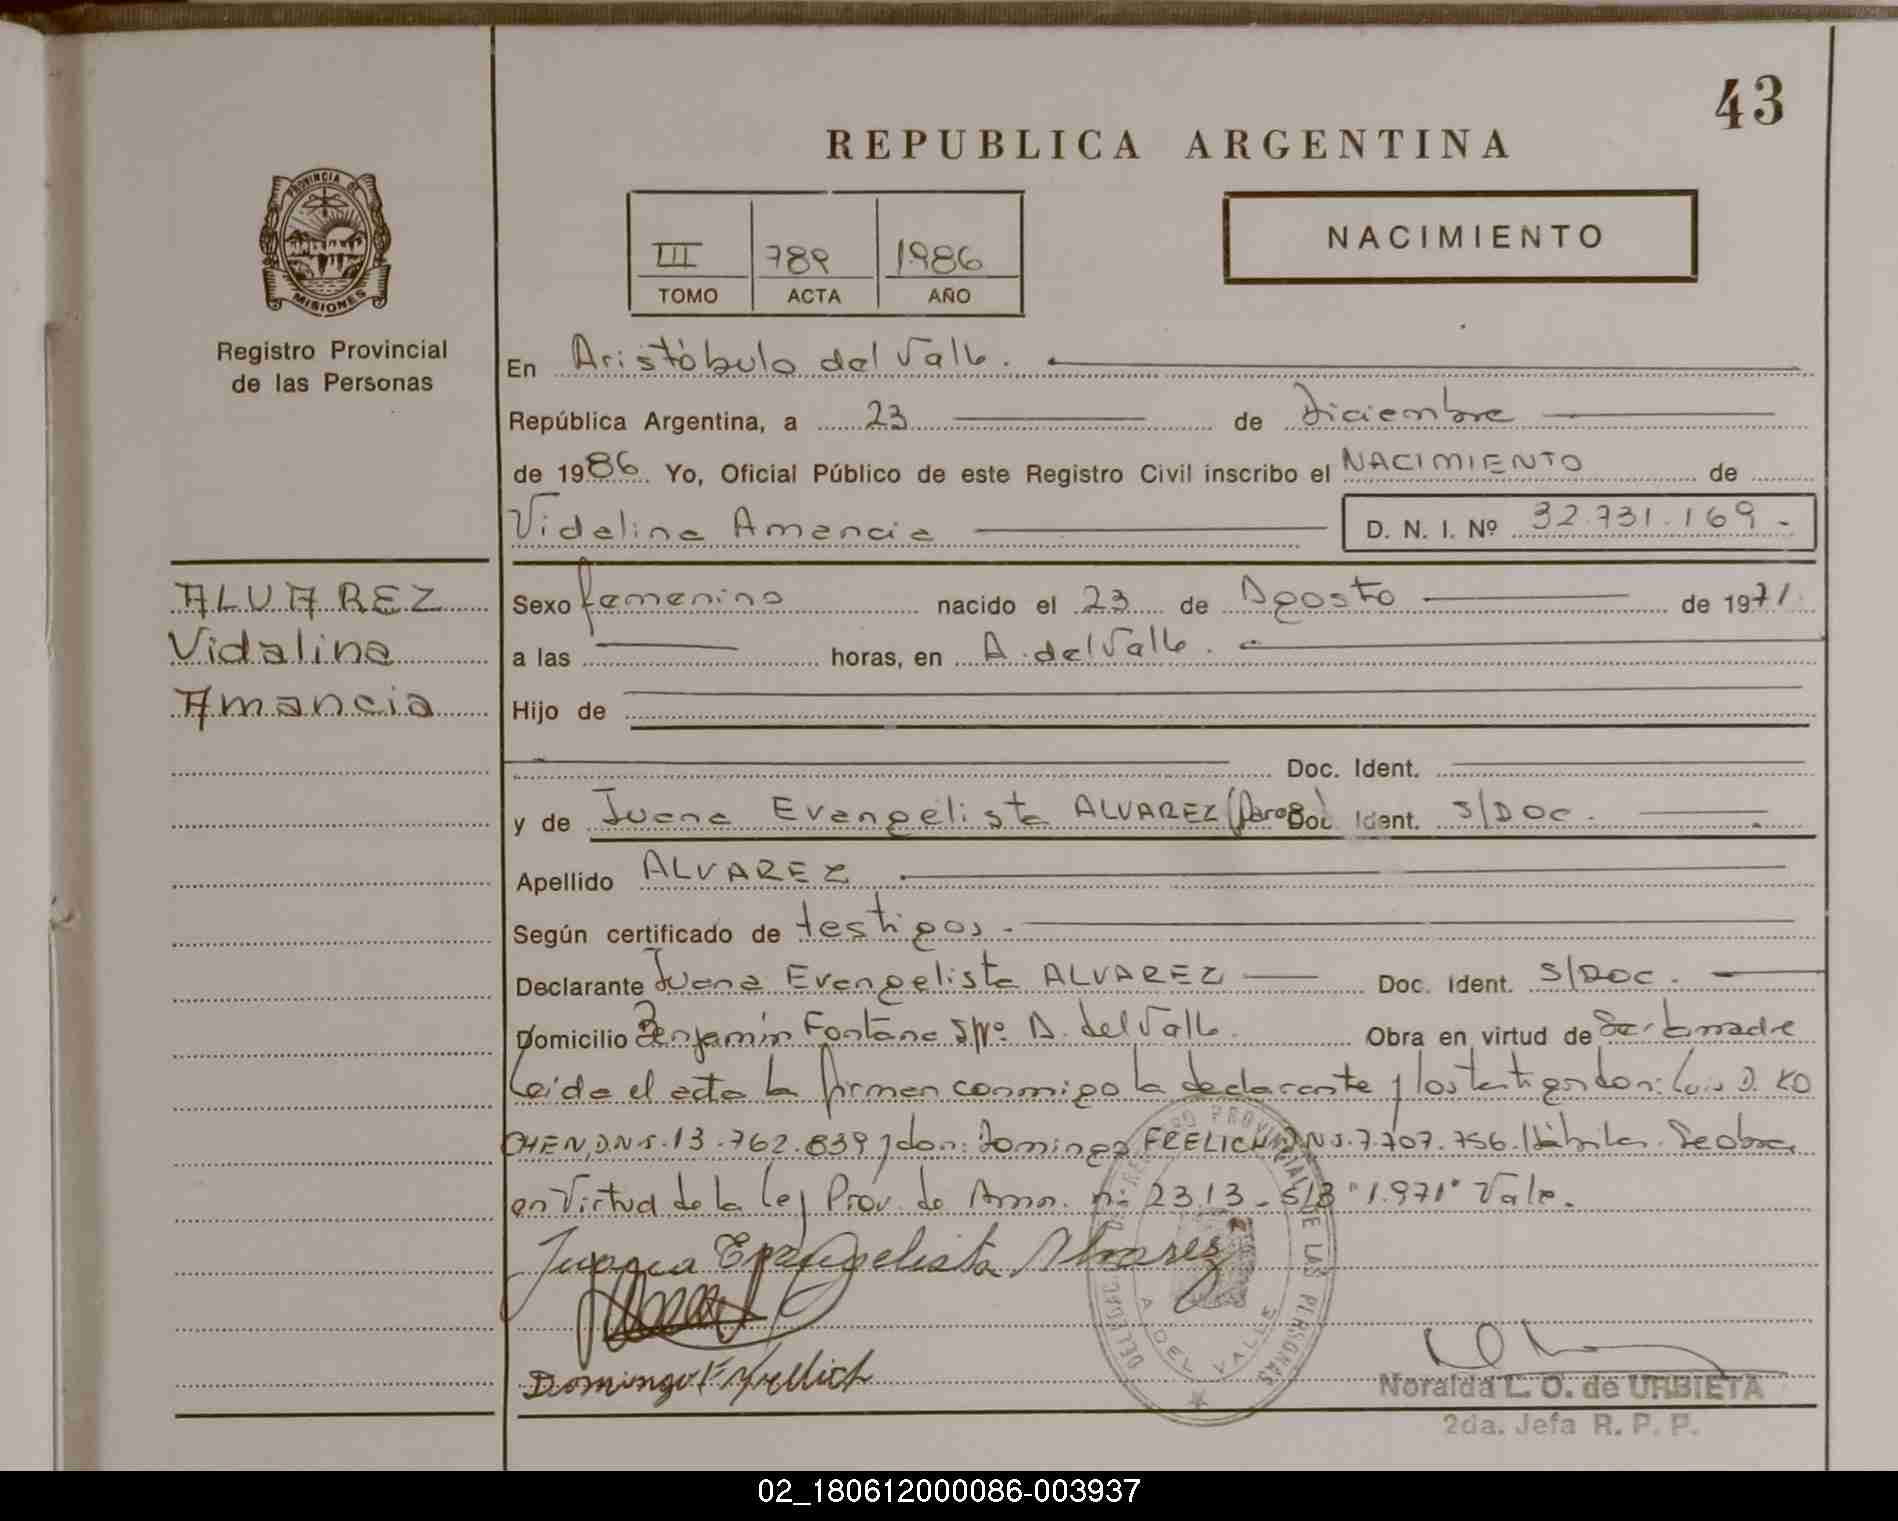 43
REPUBLICA ARGENTINA
PROVINCIA DE
MISIONES
Registro Provincial
de las Personas
III 789 1986
TOMO ACTA AÑO
NACIMIENTO
En Aristóbulo del Valle.
República Argentina, a 23 de Diciembre
de 1986. Yo, Oficial Público de este Registro Civil inscribo el NACIMIENTO de
Vidalina Amancia D. N. I. Nº 32.731.169.-
ALVAREZ
Vidalina
Amancia
Sexo femenino nacido el 23 de Agosto de 1971.
a las horas, en A. del Valle.
Hijo de
Doc. Ident.
y de Juana Evangelista ALVAREZ Doc. Ident. S/DOC.
Apellido ALVAREZ
Según certificado de testigos.
Declarante Juana Evangelista ALVAREZ Doc. Ident. S/DOC.
Domicilio Benjamín Fontana S/Nº A. del Valle. Obra en virtud de Ser la madre
Leída el acta la firman conmigo la declarante y los testigos don: Luis D. KO
CHEN, D.N.I. 13.762.839 y don: Domingo FRELICH D.N.I. 7.707.756. Hábiles. Se obra
en Virtud de la Ley Prov. de Amn. nº 2313 - S/B "1.971" Vale.
Juana Evangelista Alvarez
Domingo F Frellich
DELEGAC. DEL REGISTRO PROVINCIAL DE LAS PERSONAS
A. DEL VALLE
Noralda L. O. de URBIETA
2da. Jefa R. P. P.
02_180612000086-003937